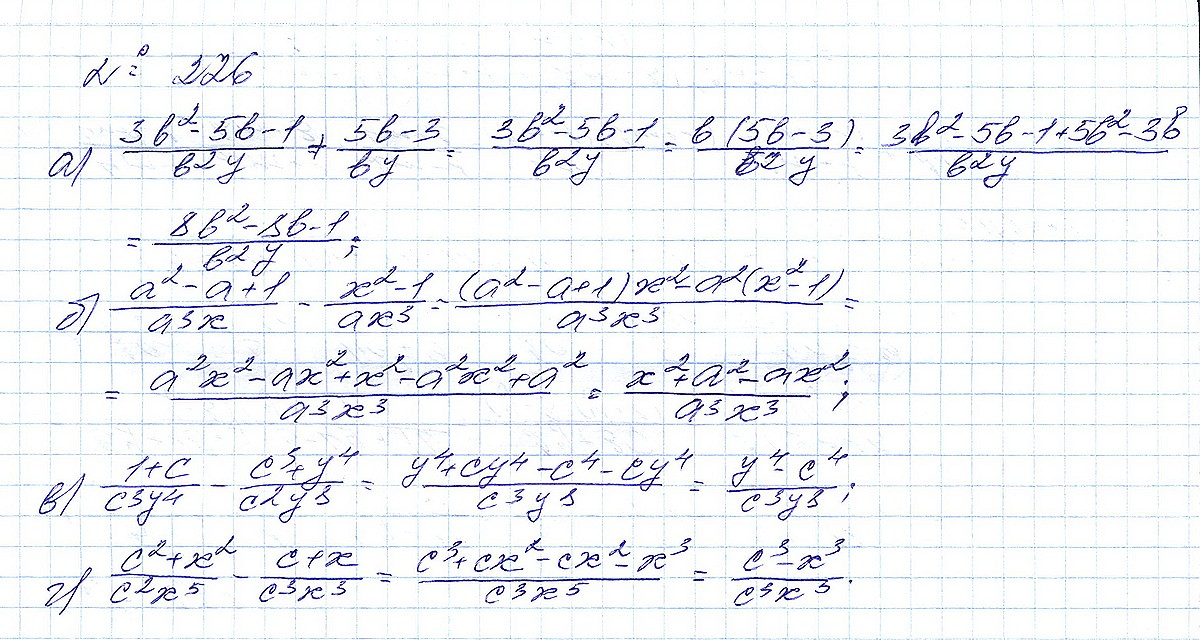 № 226
а) (3b²-5b-1)/(b²y) + (5b-3)/(by) = (3b²-5b-1)/(b²y) = (b(5b-3))/(b²y) = (3b²-5b-1+5b²-3b)/(b²y)
= (8b²-8b-1)/(b²y);
б) (a²-a+1)/(a³x) - (x²-1)/(ax³) = ((a²-a+1)x²-a²(x²-1))/(a³x³) =
= (a²x²-ax²+x²-a²x²+a²)/(a³x³) = (x²+a²-ax²)/(a³x³);
в) (1+c)/(c³y⁴) - (c³+y⁴)/(c²y⁸) = (y⁴+cy⁴-c⁴-cy⁴)/(c³y⁸) = (y⁴-c⁴)/(c³y⁸);
г) (c²+x²)/(c²x⁵) - (c+x)/(c³x³) = (c³+cx²-cx²-x³)/(c³x⁵) = (c³-x³)/(c³x⁵).